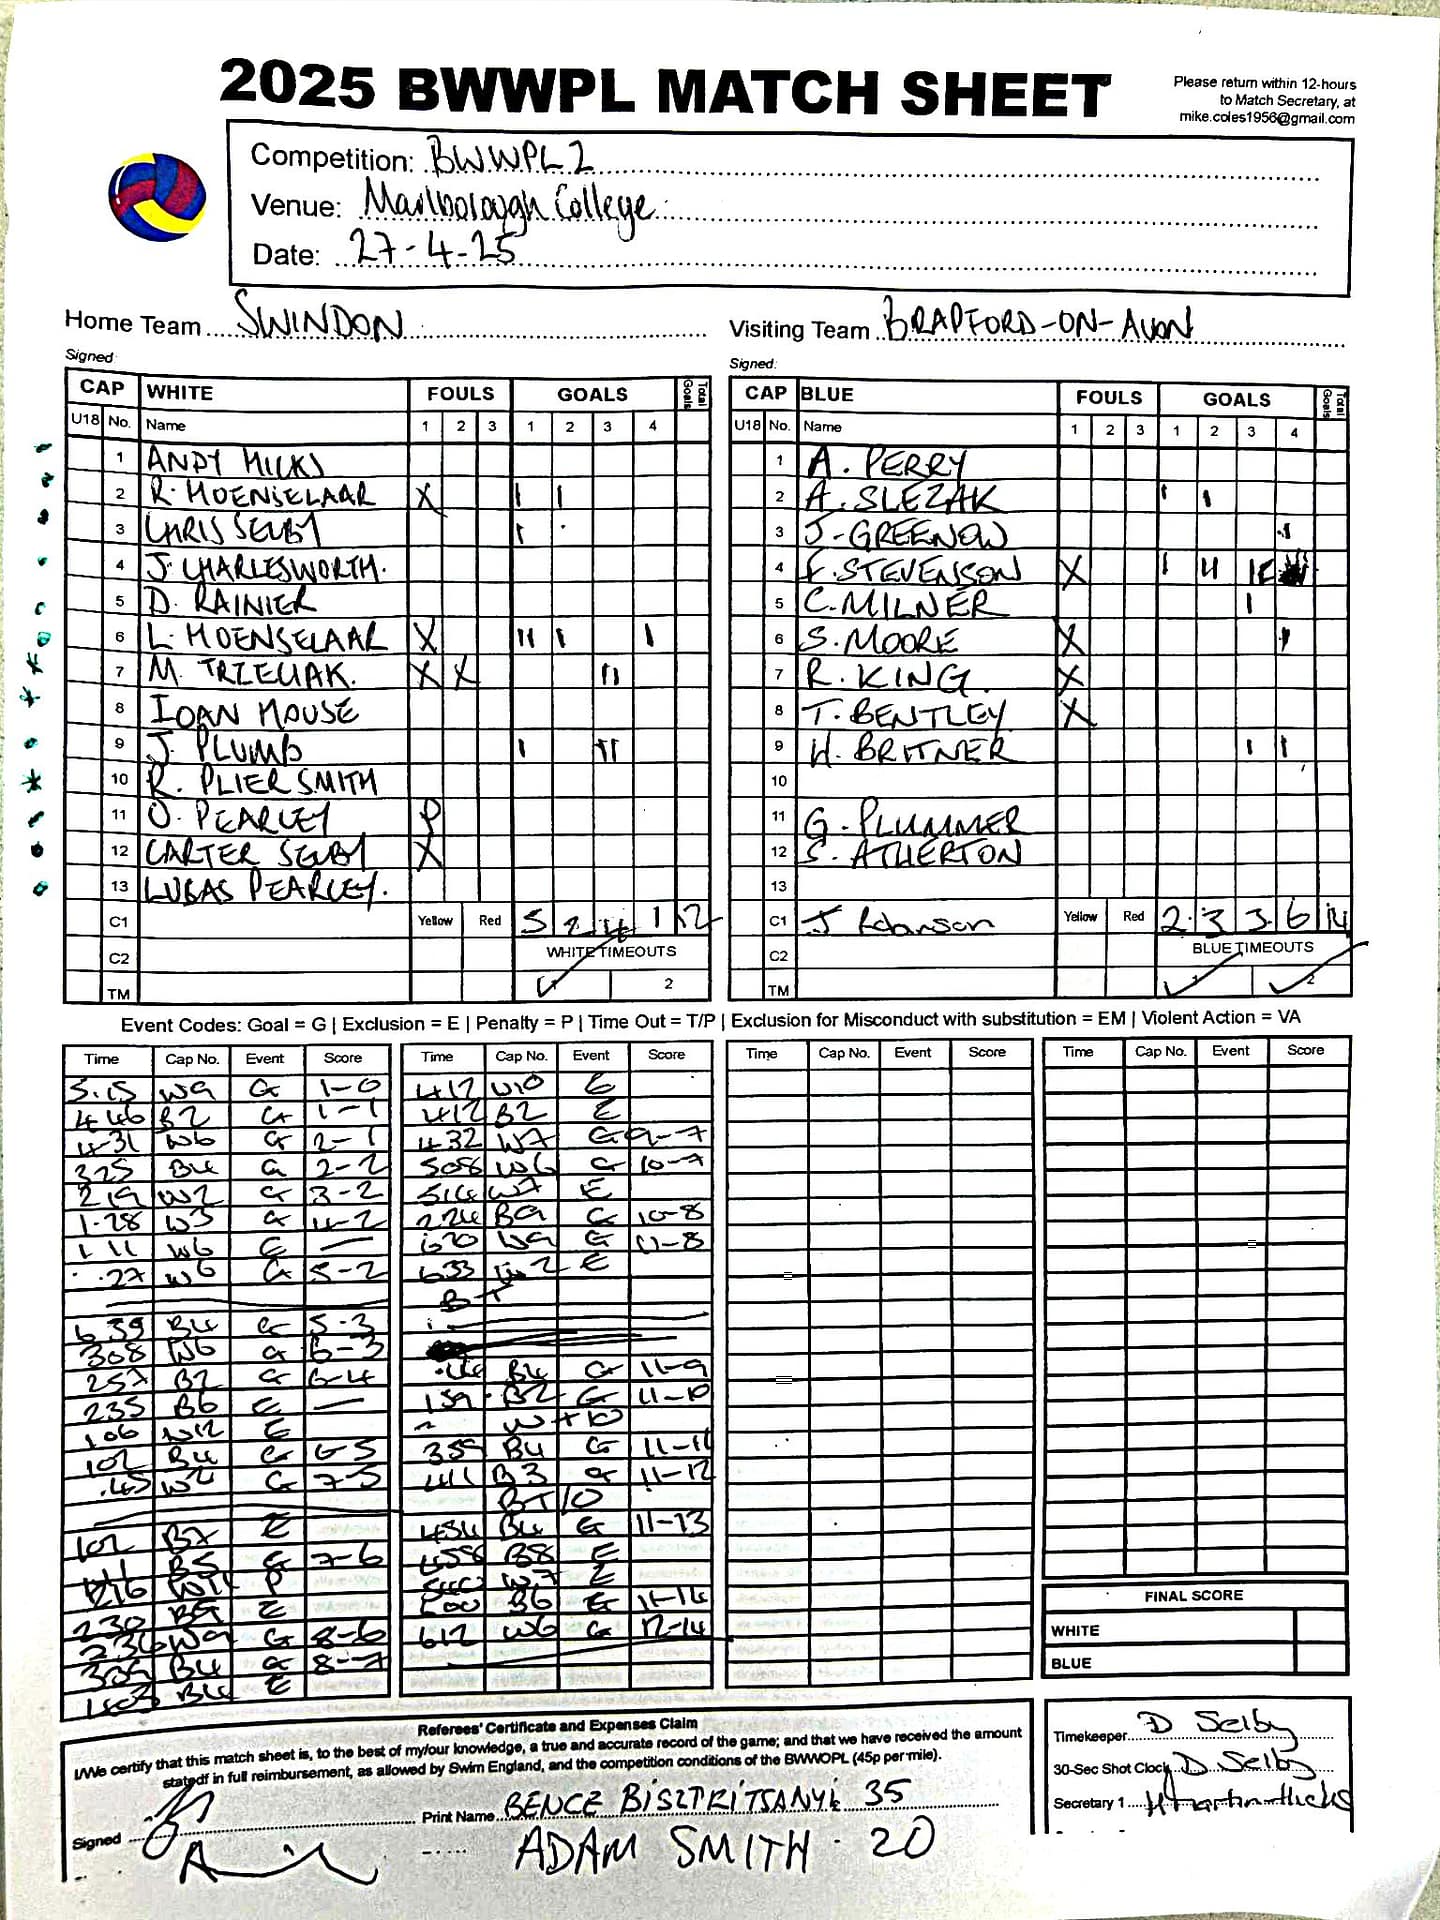 2025 BWWPL MATCH SHEET
Please return within 12-hours
to Match Secretary, at
mike.coles1956@gmail.com
Competition: BWWPL2
Venue: Marlborough College
Date: 27-4-25
Home Team SWINDON
Visiting Team BRADFORD-ON-AVON
Signed:
Signed:
CAP WHITE FOULS GOALS Total Goals
U18 No. Name 1 2 3 1 2 3 4
1 ANDY HICKS
2 R. HOENSELAAR X I I
3 CHRIS SELBY I
4 J. CHARLESWORTH.
5 D. RAINIER
6 L. HOENSELAAR X II I I
7 M. TRZECIAK. X X II
8 IOAN HOUSE
9 J. PLUMB I II
10 R. PLIER SMITH
11 O. PEARCEY P
12 CARTER SELBY X
13 LUCAS PEARCEY.
C1 Yellow Red 5 2 4 1 12
C2 WHITE TIMEOUTS
TM 2
CAP BLUE FOULS GOALS Total Goals
U18 No. Name 1 2 3 1 2 3 4
1 A. PERRY
2 A. SLEZAK I I
3 J. GREENOW I
4 F. STEVENSON X I II
5 C. MILNER I
6 S. MOORE X I
7 R. KING. X
8 T. BENTLEY X
9 H. BRITNER I I
10
11 G. PLUMMER
12 S. ATHERTON
13
C1 J Robinson Yellow Red 2 3 3 6 14
C2 BLUE TIMEOUTS
TM 2
Event Codes: Goal = G | Exclusion = E | Penalty = P | Time Out = T/P | Exclusion for Misconduct with substitution = EM | Violent Action = VA
Time Cap No. Event Score
5.15 W9 G 1-0
4 46 B2 G 1-1
4 31 W6 G 2-1
325 B4 G 2-2
219 W2 G 3-2
1-28 W3 G 4-2
1 11 W6 E —
.27 W6 G 5-2
639 B4 G 5-3
308 W6 G 6-3
257 B2 G 6-4
235 B6 E —
106 W12 E
102 B4 G 6-5
.45 W2 G 7-5
102 B7 E
B5 G 7-6
W11 P
230 B9 E
236 W9 G 8-6
B4 G 8-7
B4 E
Time Cap No. Event Score
412 W10 E
412 B2 E
432 W7 G 9-7
508 W6 G 10-7
514 W7 E
224 B9 G 10-8
W9 G 11-8
633 W2 E
BT
B4 G 11-9
159 B2 G 11-10
359 B4 G 11-11
411 B3 G 11-12
BT/O
454 B4 G 11-13
458 B8 E
W7 E
B6 G 11-14
612 W6 G 12-14
Time Cap No. Event Score
Time Cap No. Event Score
FINAL SCORE
WHITE
BLUE
Referees' Certificate and Expenses Claim
I/We certify that this match sheet is, to the best of my/our knowledge, a true and accurate record of the game; and that we have received the amount
statedf in full reimbursement, as allowed by Swim England, and the competition conditions of the BWWOPL (45p per mile).
Signed
Print Name BENCE BISZTRITSANYI 35
ADAM SMITH - 20
Timekeeper D Selby
30-Sec Shot Clock D Selby
Secretary 1